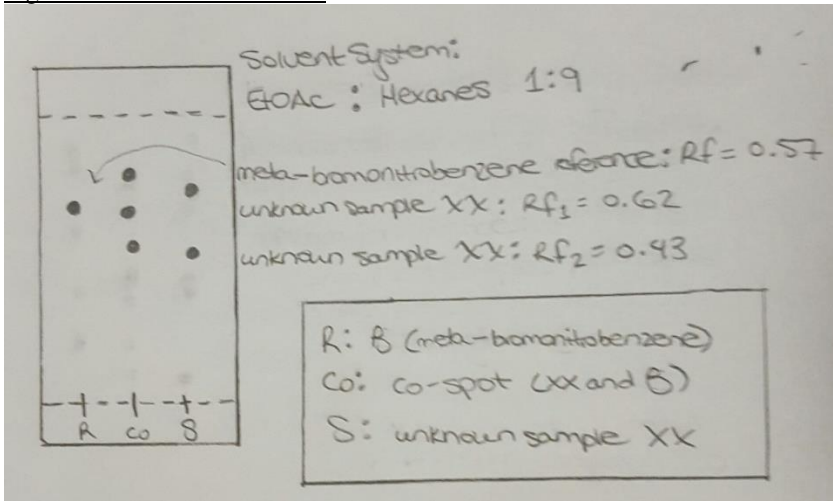 Solvent System:
EtOAc : Hexanes 1:9
meta-bromonitrobenzene reference: Rf = 0.57
unknown sample XX: Rf₁ = 0.62
unknown sample XX: Rf₂ = 0.43
R: B (meta-bromonitrobenzene)
Co: co-spot (XX and B)
S: unknown sample XX
R CO S